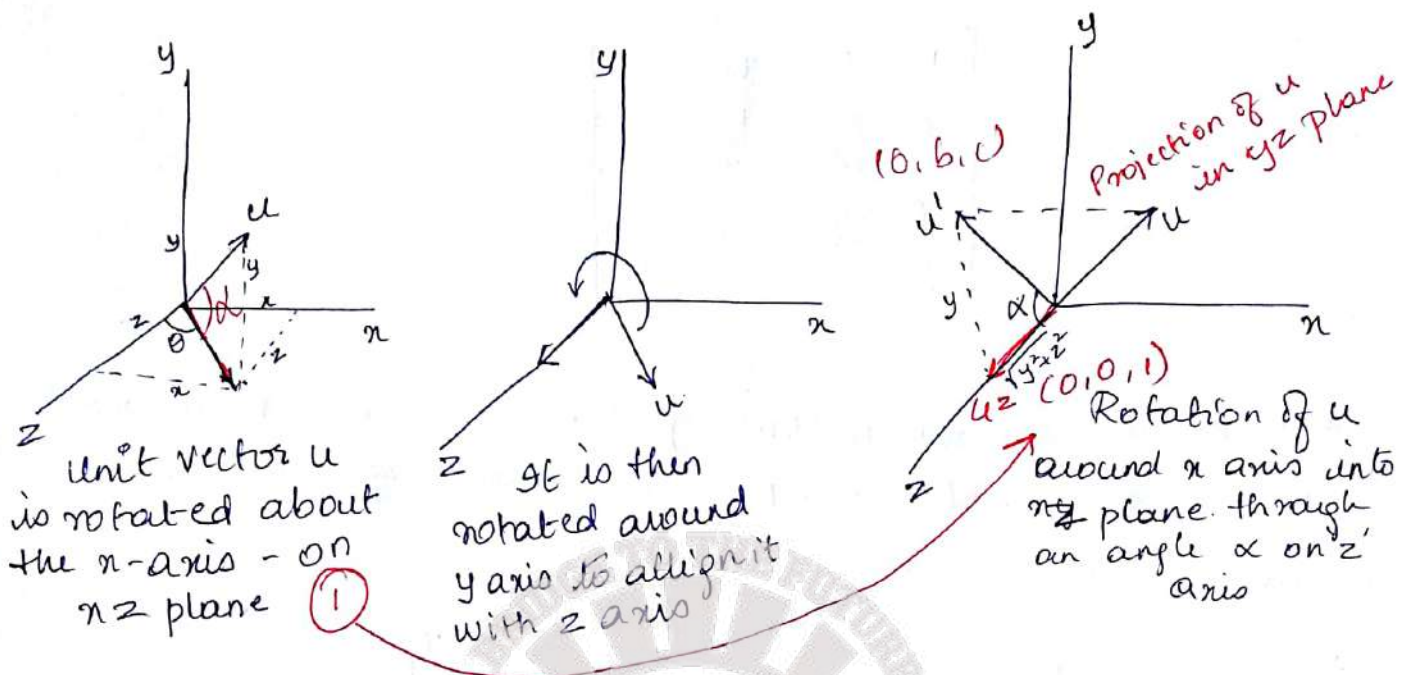 y
u
y
y
α
x
z
θ
z
x
x
z
Unit vector u
is rotated about
the x-axis - on
xz plane
1
y
x
u
z
It is then
rotated around
y axis to allign it
with z axis
y
Projection of u
in yz plane
(0, b, c)
u'
u
y
α
x
√y²+z²
uz (0,0,1)
z
Rotation of u
around x axis into
xz plane through
an angle α on z'
axis